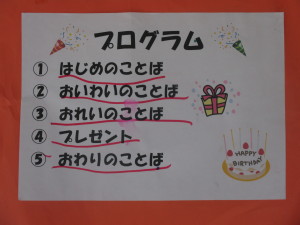 プログラム
① はじめのことば
② おいわいのことば
③ おれいのことば
④ プレゼント
⑤ おわりのことば
HAPPY
BIRTHDAY